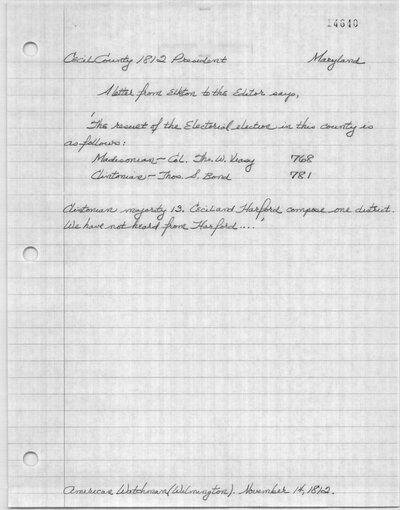 14640
Cecil County 1812 President Maryland
A letter from Elkton to the Editor says,
'The result of the Electorial election in this county is
as follows:
Madisonian - Col. Tho. W. Veasy 768
Clintonian - Thos. S. Bond 781
Clintonian majority 13. Cecil and Harford compose one district.
We have not heard from Harford....'
American Watchman (Wilmington). November 14, 1812.